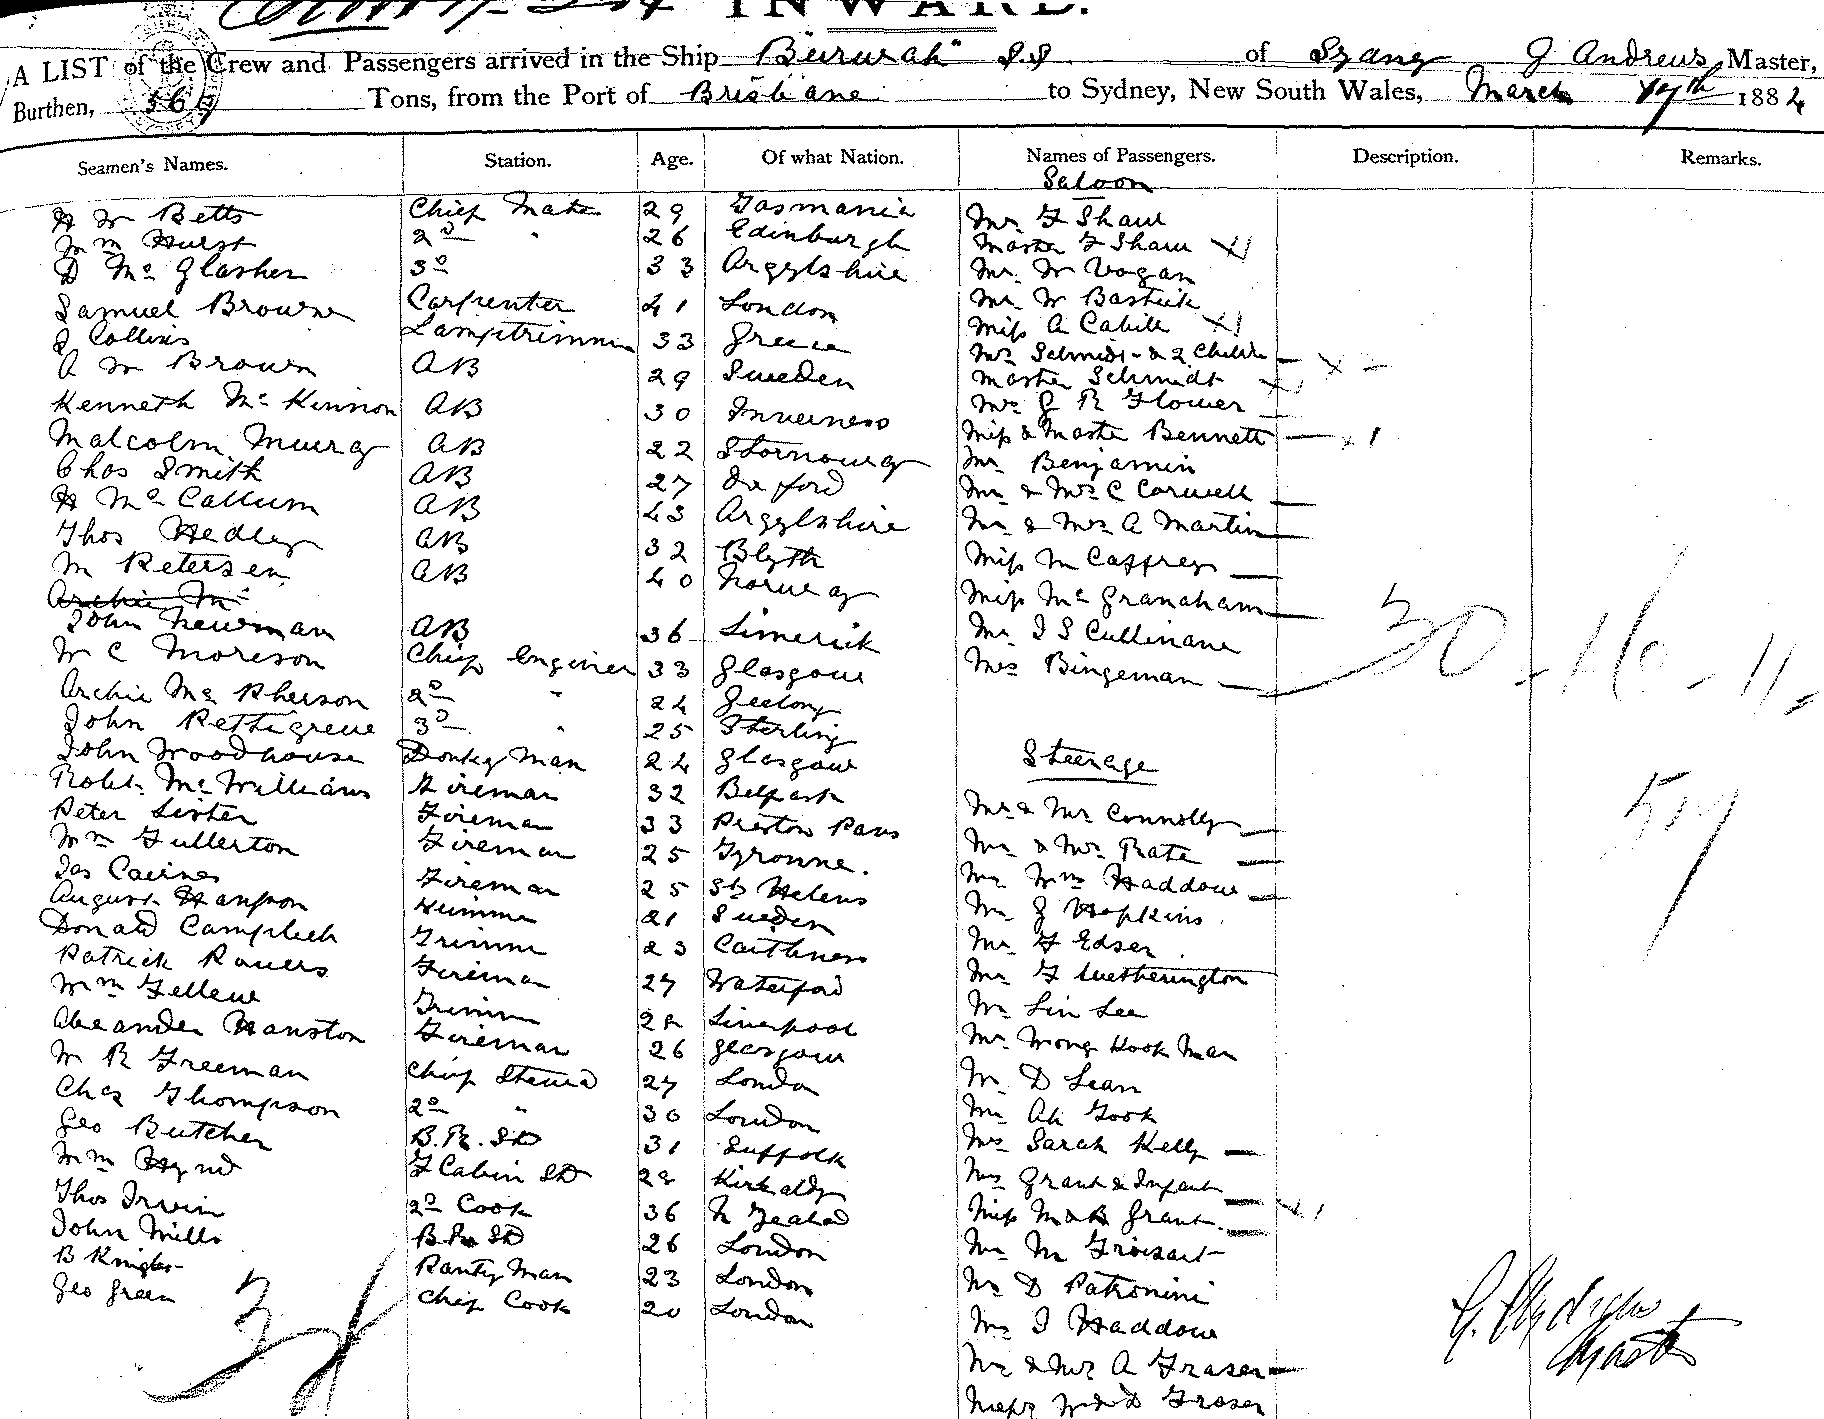 INWARD.
A LIST of the Crew and Passengers arrived in the Ship "Burwah" SS of J Andrews, Master,
Burthen, Tons, from the Port of Brisbane to Sydney, New South Wales, March 17th 1884
Seamen's Names. Station. Age. Of what Nation. Names of Passengers. Description. Remarks.
Saloon
H W Betts Chief Mate 29 Tasmania Mr. F Shaw
Wm Hurst 2D " 26 Edinburgh Master F Shaw x1
D Mc Glasher 3D 33 Argylshire Mr. W Vogan
Samuel Browne Carpenter 41 London Mr W Bastick
J Collins Lamptrimmer 33 Greece Miss A Cahill x1
A W Brown AB 29 Sweden Mrs Schmidt & 2 Childn x 2
Master Schmidt x1
Kenneth Mc Kinnon AB 30 Inverness Mrs J R Flower
Malcolm Murray AB 22 Stornoway Miss & Master Bennett x 1
Chas Smith AB 27 Oxford Mr Benjamin
H Mc Callum AB 43 Argylshire Mr & Mrs C Carwell
Thos Hedley AB 32 Blyth Mr & Mrs A Martin
M Petersen AB 40 Norway Miss M Caffrey
Archie Mc Miss Mc Granaham
John Newman AB 36 Limerick Mr I S Cullinane
W C Moreson Chief Engineer 33 Glasgow Mrs Bingeman 30 - 16 - 11 -
Archie Mc Pherson 2D " 24 Geelong
John Pettigrew 3D " 25 Sterling
John Woodhouse Donkey Man 24 Glasgow Steerage
Robt Mc Williams Fireman 32 Belfast 57
Peter Lister Fireman 33 Preston Pans Mr & Mrs Connolly
Wm Fullerton Fireman 25 Tyronne. Mr & Mrs Pate
Jas Cairnes Fireman 25 St Helens Mrs Wm Haddow
August Hansson Trimmer 21 Sweden Mr J Hopkins
Donald Campbell Trimmer 23 Caithness Mr F Edser
Patrick Powers Fireman 27 Waterford Mr F Wetherington
Wm Fellew Trimmer 28 Liverpool Mr Lin Lee
Alexander Hanston Fireman 26 Glasgow Mr Wong Hook Man
W R Freeman Chief Steward 27 London Mr D Lean
Chas Thompson 2D " 30 London Mr Ah Gook
Geo Butcher B.R. SD 31 Suffolk Mrs Sarah Kelly
Wm Hynd F Cabin SD 28 Kirkaldy Mrs Grant & Infant x 1
Thos Irwin 2D Cook 36 N Zealad Miss M & B Grant
John Mills B.R SD 26 London Mr M
B Knights Pantry Man 23 London Mr D Patronini
Geo Green Chief Cook 20 London Mr J Haddow
Mr & Mrs A Fraser
W & D Fraser
J. Andrews
Master